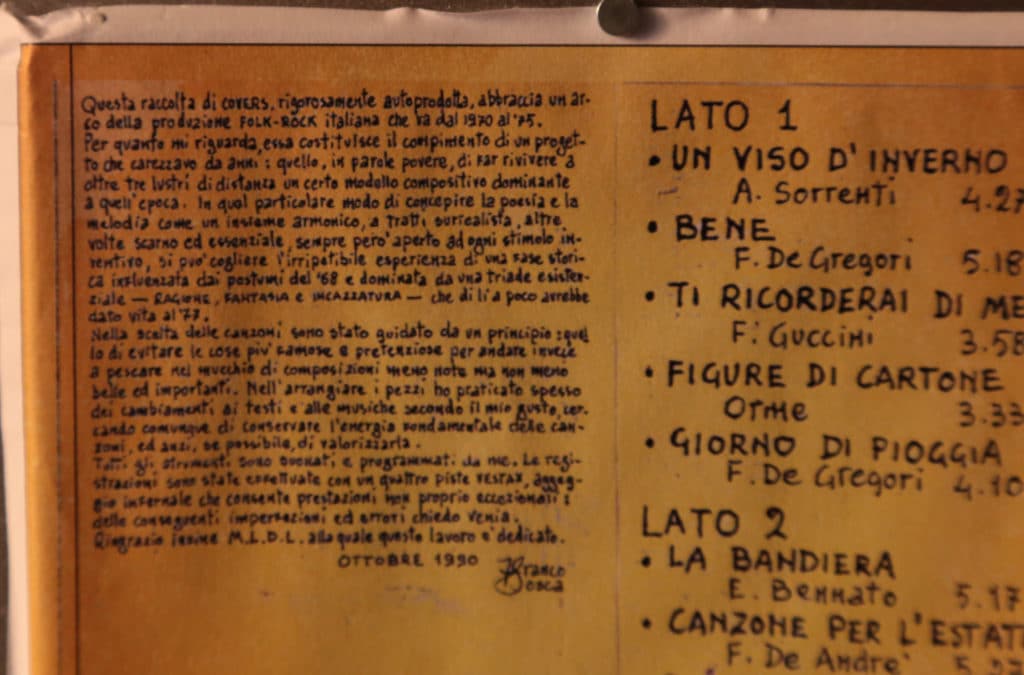 Questa raccolta di COVERS, rigorosamente autoprodotta, abbraccia un ar-
co della produzione FOLK-ROCK italiana che va dal 1970 al '75.
Per quanto mi riguarda, essa costituisce il compimento di un proget-
to che carezzavo da anni: quello, in parole povere, di far rivivere a
oltre tre lustri di distanza un certo modello compositivo dominante
a quell'epoca. In quel particolare modo di concepire la poesia e la
melodia come un insieme armonico, a tratti surrealista, altre
volte scarno ed essenziale, sempre pero' aperto ad ogni stimolo in-
ventivo, si puo' cogliere l'irripetibile esperienza di una fase stori-
ca influenzata dai postumi del '68 e dominata da una triade esisten-
ziale — RAGIONE, FANTASIA e INCAZZATURA — che di lì a poco avrebbe
dato vita al '77.
Nella scelta delle canzoni sono stato guidato da un principio: quel
lo di evitare le cose piu' famose e pretenziose per andare invece
a pescare nel mucchio di composizioni meno note ma non meno
belle ed importanti. Nell'arrangiare i pezzi ho praticato spesso
dei cambiamenti ai testi e alle musiche secondo il mio gusto, cer-
cando comunque di conservare l'energia fondamentale delle can-
zoni, ed anzi, se possibile, di valorizzarla.
Tutti gli strumenti sono suonati e programmati da me. Le regi-
strazioni sono state effettuate con un quattro piste VESTAX, aggeg-
gio infernale che consente prestazioni non proprio eccezionali:
delle conseguenti imperfezioni ed errori chiedo venia.
Ringrazio infine M.L.D.L. alla quale questo lavoro e' dedicato.
OTTOBRE 1990
Franco
Bosca
LATO 1
• UN VISO D'INVERNO
A. Sorrenti 4.27
• BENE
F. De Gregori 5.18
• TI RICORDERAI DI ME
F. Guccini 3.58
• FIGURE DI CARTONE
Orme 3.33
• GIORNO DI PIOGGIA
F. De Gregori 4.10
LATO 2
• LA BANDIERA
E. Bennato 5.17
• CANZONE PER L'ESTATE
F. De Andre'